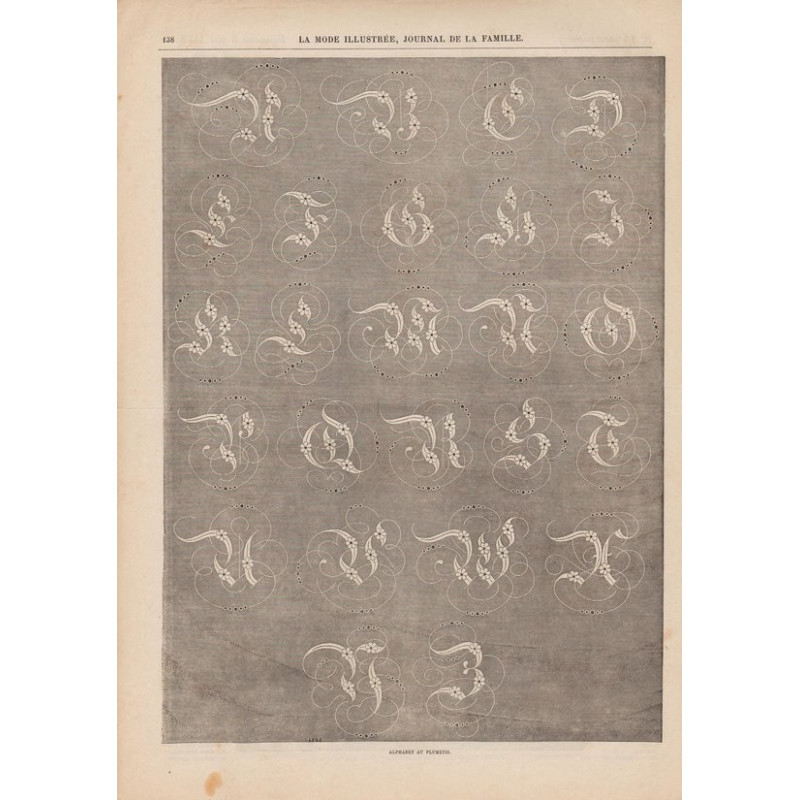 138
LA MODE ILLUSTRÉE, JOURNAL DE LA FAMILLE.
A B C D
E F G H I
K L M N O
P Q R S T
U V W X
Y Z
ALPHABET AU PLUMETIS.